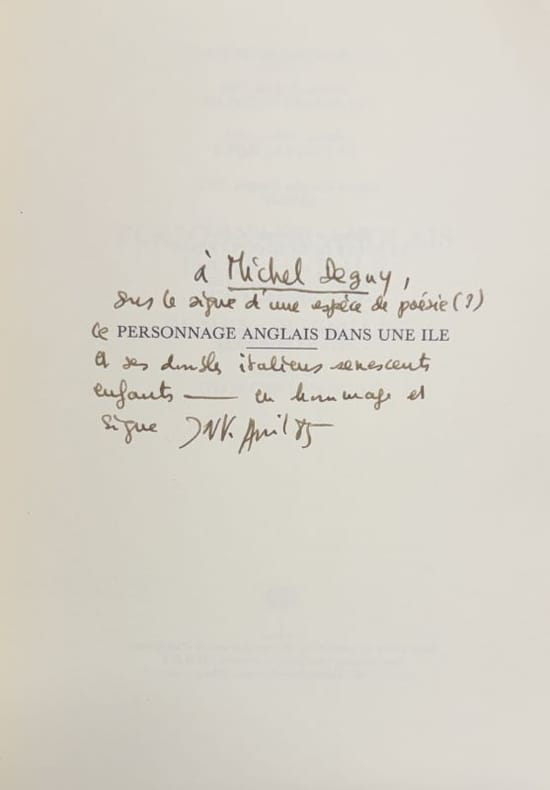 à Michel Deguy,
sous le signe d'une espèce de poésie (?)
ce PERSONNAGE ANGLAIS DANS UNE ILE
et ses doubles italiens senescents
enfants — en hommage et
signe JNV. Avril 85